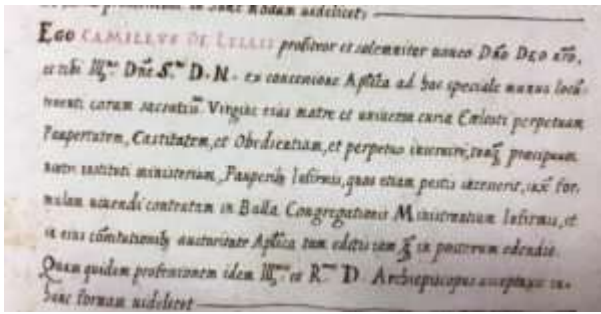 in hunc modum uidelicet
Ego CAMILLVS DE LELLIS profiteor et solemniter uoueo Dño Deo ñro,
et tibi Illmo Dñe S. D. N. ex concessione Aplica ad hoc speciale munus
coram sacratis. Virgine eius matre et uniuersa curia Cœlesti perpetuam
Paupertatem, Castitatem, et Obedientiam, et perpetuo inseruire, præcipuum
nostri instituti ministerium, Pauperib Infirmis, quos etiam pestis incesserit, iux for,
mulam uiuendi contentam in Bulla Congregationis Ministrantium Infirmis, et
in eius cõstitutionib auctoritate Aplica tam editis in posterum edendis.
Quam quidem professionem idem Illmus et Rmus D. Archiepiscopus acceptauit in
hanc formam uidelicet